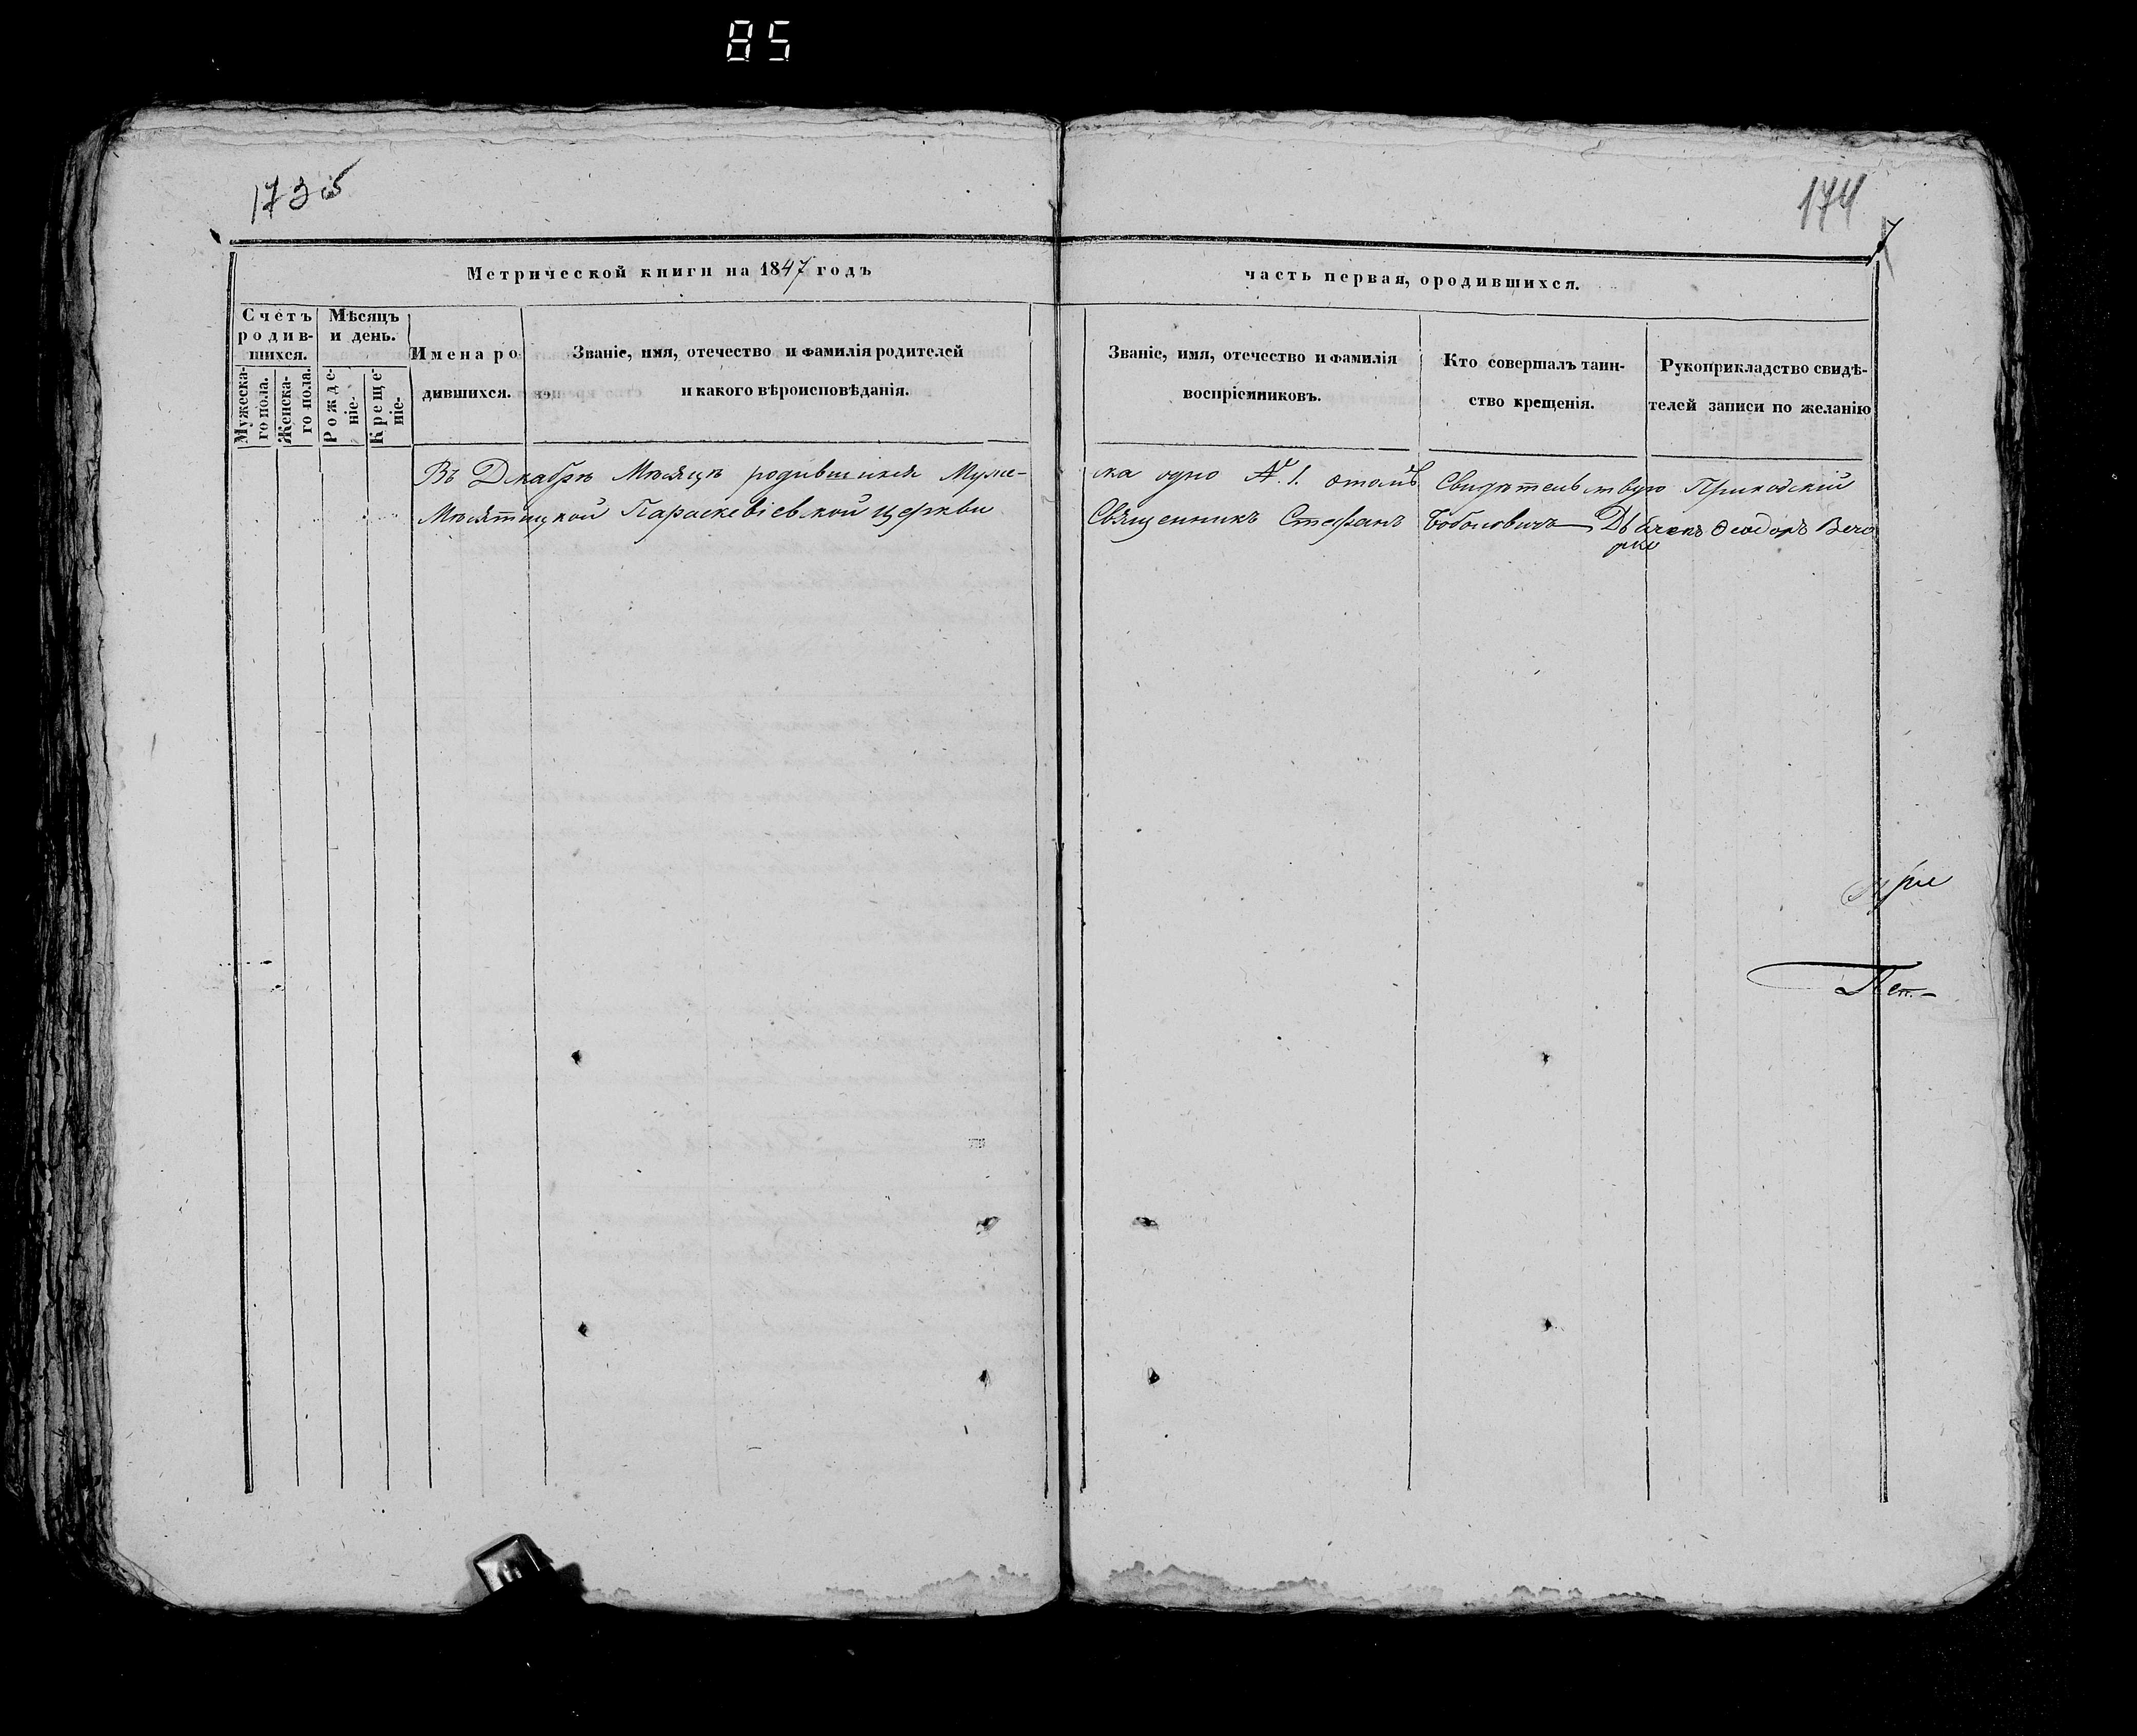 85
173 об
174
7
Метрической книги на 1847 годъ
часть первая, ородившихся.
Счетъ родив-шихся.
Мѣсяцъ и день.
Мужеска-го пола.
Женска-го пола.
Рожде-ніе-
Креще-ніе-
Имена ро
дившихся.
Званіе, имя, отечество и фамилія родителей
и какого вѣроисповѣданія.
Званіе, имя, отечество и фамилія
воспріемниковъ.
Кто совершалъ таин-
ство крещенія.
Рукоприкладство свидѣ-
телей записи по желанію
Въ Декабрѣ Мѣсяцѣ родившихся Муже-
ска одно №. 1. отомъ Свидѣтельствую Приходскій
Мѣсятицкой Параскевіевской церкви
Священникъ Стефанъ Дьячекъ Ѳеодоръ Веча
рко